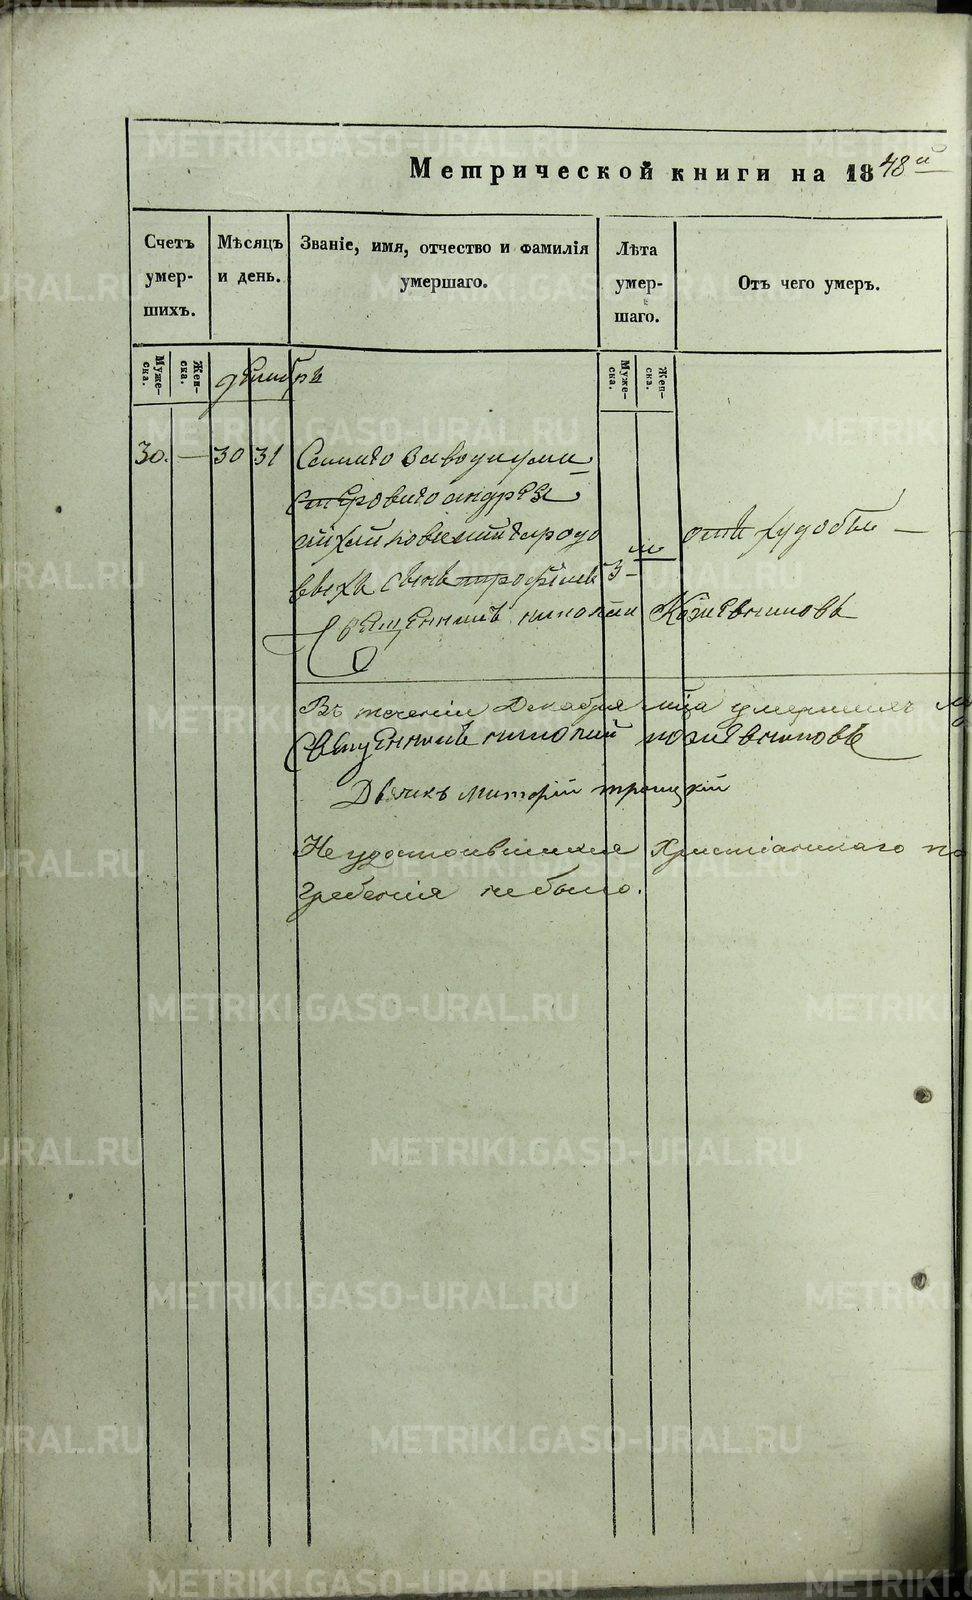 Метрической книги на 1848й
Счетъ умер-шихъ.
Мѣсяцъ и день.
Званіе, имя, отчество и фамилія умершаго.
Лѣта умер-шаго.
Отъ чего умеръ.
Муже-ска.
Жен-ска.
Муже-ска.
Жен-ска.
декабрь
30. — 30 31 Сего завода ума
стерового андрея
михайлова
сынъ 3 м отъ худобы —
Священникъ николай Кожевниковъ
Въ теченіи Декабря м-ца умершихъ
Священникъ николай кожевниковъ
Дьячекъ троицкій
Неудостоившихся Христіанскаго по
гребенія небыло.
METRIKI.GASO-URAL.RU